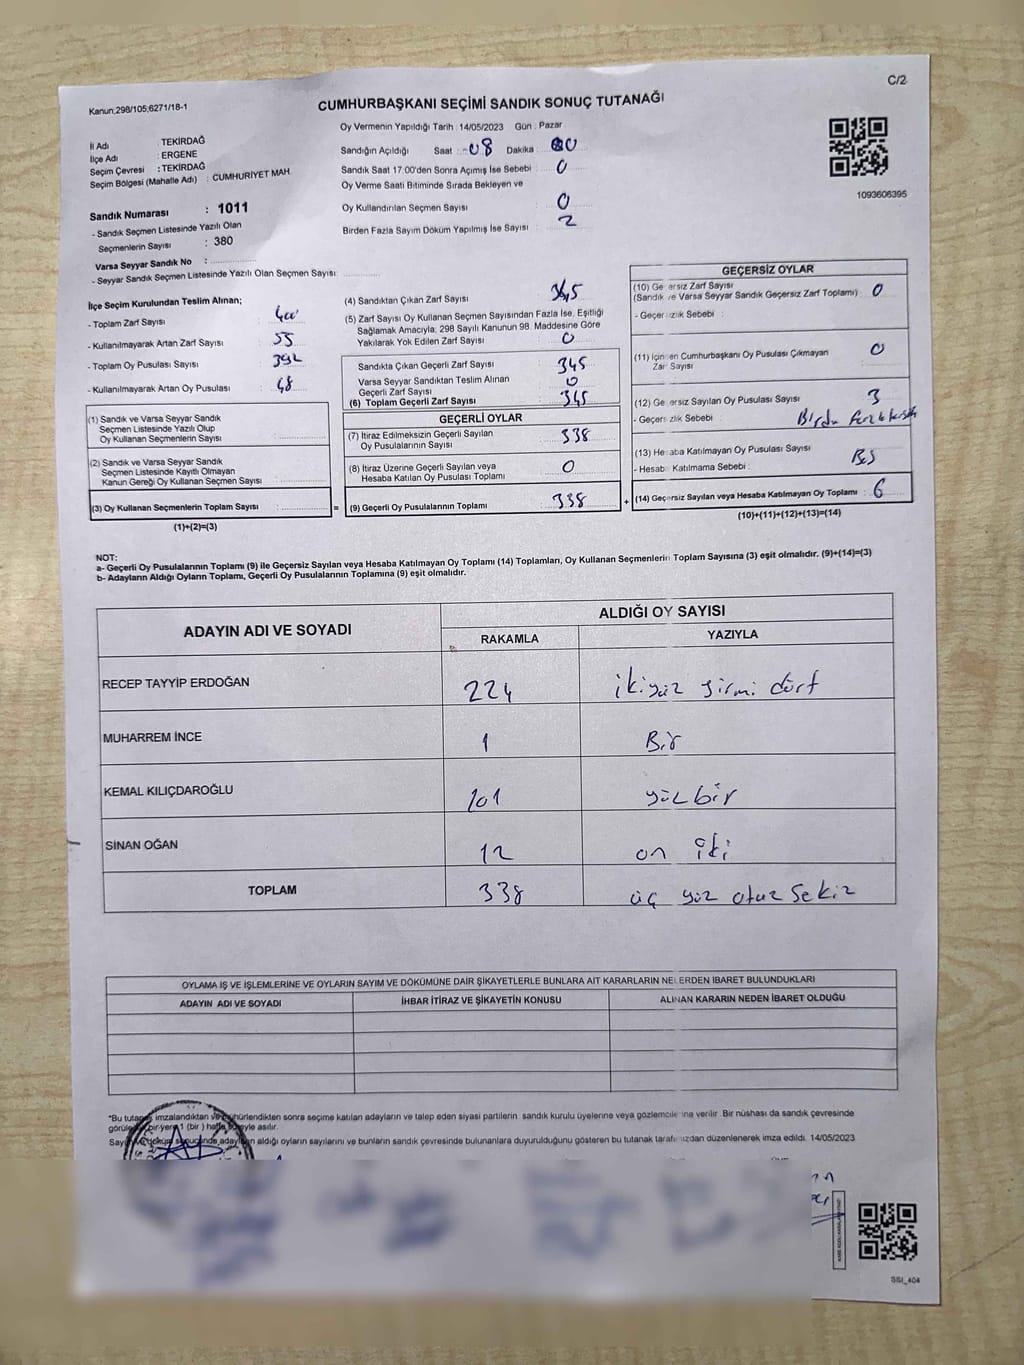 C/2
Kanun:298/105;6271/18-1
CUMHURBAŞKANI SEÇİMİ SANDIK SONUÇ TUTANAĞI
Oy Vermenin Yapıldığı Tarih : 14/05/2023 Gün : Pazar
İl Adı : TEKİRDAĞ
İlçe Adı : ERGENE
Seçim Çevresi : TEKİRDAĞ
Seçim Bölgesi (Mahalle Adı) : CUMHURİYET MAH.
Sandığın Açıldığı Saat : 08 Dakika : 00
Sandık Saat 17:00'den Sonra Açımış İse Sebebi : 0
Oy Verme Saati Bitiminde Sırada Bekleyen ve
Oy Kullandırılan Seçmen Sayısı : 0
Birden Fazla Sayım Döküm Yapılmış İse Sayısı : 2
1093606395
Sandık Numarası : 1011
- Sandık Seçmen Listesinde Yazılı Olan
Seçmenlerin Sayısı : 380
Varsa Seyyar Sandık No :
- Seyyar Sandık Seçmen Listesinde Yazılı Olan Seçmen Sayısı:
İlçe Seçim Kurulundan Teslim Alınan;
- Toplam Zarf Sayısı : 400
- Kullanılmayarak Artan Zarf Sayısı : 55
- Toplam Oy Pusulası Sayısı : 392
- Kullanılmayarak Artan Oy Pusulası : 48
(1) Sandık ve Varsa Seyyar Sandık
Seçmen Listesinde Yazılı Olup
Oy Kullanan Seçmenlerin Sayısı :
(2) Sandık ve Varsa Seyyar Sandık
Seçmen Listesinde Kayıtlı Olmayan
Kanun Gereği Oy Kullanan Seçmen Sayısı :
(3) Oy Kullanan Seçmenlerin Toplam Sayısı :
(1)+(2)=(3)
(4) Sandıktan Çıkan Zarf Sayısı : 345
(5) Zarf Sayısı Oy Kullanan Seçmen Sayısından Fazla İse, Eşitliği
Sağlamak Amacıyla; 298 Sayılı Kanunun 98. Maddesine Göre
Yakılarak Yok Edilen Zarf Sayısı : 0
Sandıkta Çıkan Geçerli Zarf Sayısı : 345
Varsa Seyyar Sandıktan Teslim Alınan
Geçerli Zarf Sayısı : 0
(6) Toplam Geçerli Zarf Sayısı : 345
GEÇERLİ OYLAR
(7) İtiraz Edilmeksizin Geçerli Sayılan
Oy Pusulalarının Sayısı : 338
(8) İtiraz Üzerine Geçerli Sayılan veya
Hesaba Katılan Oy Pusulası Toplamı : 0
= (9) Geçerli Oy Pusulalarının Toplamı : 338 +
GEÇERSİZ OYLAR
(10) Geçersiz Zarf Sayısı
(Sandık ve Varsa Seyyar Sandık Geçersiz Zarf Toplamı) : 0
- Geçersizlik Sebebi :
(11) İçinden Cumhurbaşkanı Oy Pusulası Çıkmayan
Zarf Sayısı : 0
(12) Geçersiz Sayılan Oy Pusulası Sayısı : 3
- Geçersizlik Sebebi : Birden
(13) Hesaba Katılmayan Oy Pusulası Sayısı
- Hesaba Katılmama Sebebi :
(14) Geçersiz Sayılan veya Hesaba Katılmayan Oy Toplamı : 6
(10)+(11)+(12)+(13)=(14)
NOT:
a- Geçerli Oy Pusulalarının Toplamı (9) ile Geçersiz Sayılan veya Hesaba Katılmayan Oy Toplamı (14) Toplamları, Oy Kullanan Seçmenlerin Toplam Sayısına (3) eşit olmalıdır. (9)+(14)=(3)
b- Adayların Aldığı Oyların Toplamı, Geçerli Oy Pusulalarının Toplamına (9) eşit olmalıdır.
ADAYIN ADI VE SOYADI ALDIĞI OY SAYISI
RAKAMLA YAZIYLA
RECEP TAYYİP ERDOĞAN 224 ikiyüz yirmi dört
MUHARREM İNCE 1 Bir
KEMAL KILIÇDAROĞLU 101 yüz bir
SİNAN OĞAN 12 on iki
TOPLAM 338 üç yüz otuz sekiz
OYLAMA İŞ VE İŞLEMLERİNE VE OYLARIN SAYIM VE DÖKÜMÜNE DAİR ŞİKAYETLERLE BUNLARA AİT KARARLARIN NELERDEN İBARET BULUNDUKLARI
ADAYIN ADI VE SOYADI İHBAR İTİRAZ VE ŞİKAYETİN KONUSU ALINAN KARARIN NEDEN İBARET OLDUĞU
*Bu tutanak imzalandıktan ve mühürlendikten sonra seçime katılan adayların ve talep eden siyasi partilerin sandık kurulu üyelerine veya gözlemcilerina verilir. Bir nüshası da sandık çevresinde
bir yere 1 (bir ) hafta süreyle asılır.
Sayım ve döküm sonucunda adayların aldığı oyların sayılarını ve bunların sandık çevresinde bulunanlara duyurulduğunu gösteren bu tutanak tarafımızdan düzenlenerek imza edildi. 14/05/2023
SSI_404